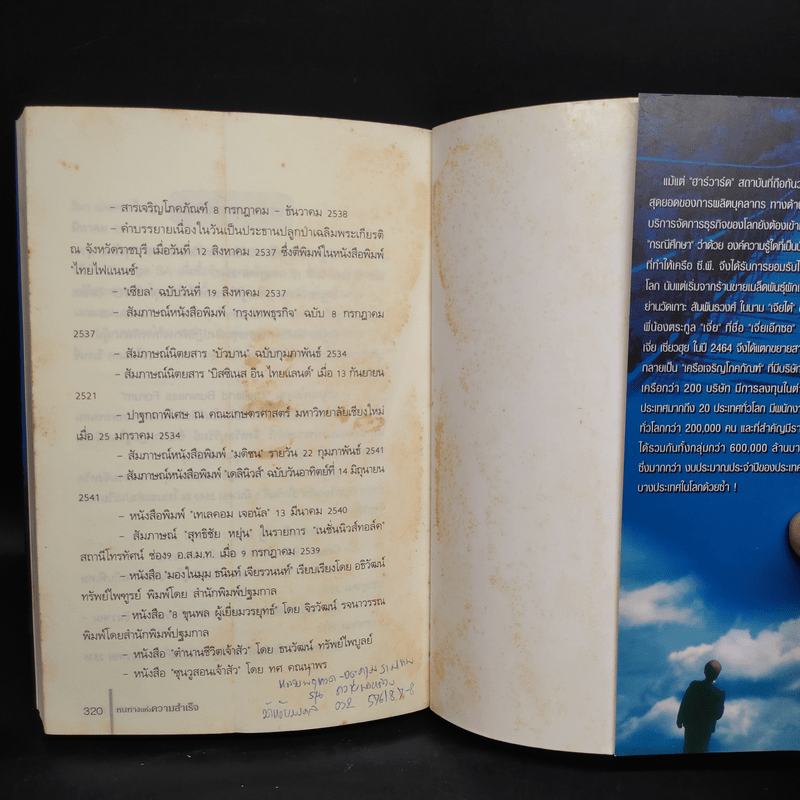 – สารเจริญโภคภัณฑ์ 8 กรกฎาคม – ธันวาคม 2538
– คำบรรยายเนื่องในวันเป็นประธานปลูกป่าเฉลิมพระเกียรติ
ณ จังหวัดราชบุรี เมื่อวันที่ 12 สิงหาคม 2537 ซึ่งตีพิมพ์ในหนังสือพิมพ์
"ไทยไฟแนนซ์"
– "เซียล" ฉบับวันที่ 19 สิงหาคม 2537
– สัมภาษณ์หนังสือพิมพ์ "กรุงเทพธุรกิจ" ฉบับ 8 กรกฎาคม
2537
– สัมภาษณ์นิตยสาร "บัวบาน" ฉบับกุมภาพันธ์ 2534
– สัมภาษณ์นิตยสาร "บิสซิเนส อิน ไทยแลนด์" เมื่อ 13 กันยายน
2521
– ปาฐกถาพิเศษ ณ คณะเกษตรศาสตร์ มหาวิทยาลัยเชียงใหม่
เมื่อ 25 มกราคม 2534
– สัมภาษณ์หนังสือพิมพ์ "มติชน" รายวัน 22 กุมภาพันธ์ 2541
– สัมภาษณ์หนังสือพิมพ์ "เดลินิวส์" ฉบับวันอาทิตย์ที่ 14 มิถุนายน
2541
– หนังสือพิมพ์ "เทเลคอม เจอนัล" 13 มีนาคม 2540
– สัมภาษณ์ "สุทธิชัย หยุ่น" ในรายการ "เนชั่นนิวส์ทอล์ค"
สถานีโทรทัศน์ ช่อง9 อ.ส.ม.ท. เมื่อ 9 กรกฎาคม 2539
– หนังสือ "มองในมุม ธนินท์ เจียรวนนท์" เรียบเรียงโดย อธิวัฒน์
ทรัพย์ไพฑูรย์ พิมพ์โดย สำนักพิมพ์ปฐมกาล
– หนังสือ "8 ขุนพล ผู้เยี่ยมวรยุทธ์" โดย จิรวัฒน์ รจนาวรรณ
พิมพ์โดยสำนักพิมพ์ปฐมกาล
– หนังสือ "ตำนานชีวิตเจ้าสัว" โดย ธนวัฒน์ ทรัพย์ไพบูลย์
– หนังสือ "ซุนวูสอนเจ้าสัว" โดย ทศ คณนาพร
320 หนทางแห่งความสำเร็จ
แม้แต่ "ฮาร์วาร์ด" สถาบันที่ถือกัน
สุดยอดของการผลิตบุคลากร ทางด้าน
บริการจัดการธุรกิจของโลกยังต้องเข้า
"กรณีศึกษา" ว่าด้วย องค์ความรู้ใดที่เป็น
ที่ทำให้เครือ ซี.พี. จึงได้รับการยอมรับ
โลก นับแต่เริ่มจากร้านขายเมล็ดพันธุ์ผัก
ย่านวัดเกาะ สัมพันธวงศ์ ในนาม "เจียไต๋"
พี่น้องตระกูล "เจี่ย" ที่ชื่อ "เจี่ยเอ็กซอ"
เจี่ย เซี่ยวฮุย ในปี 2464 จึงได้แตกขยาย
กลายเป็น "เครือเจริญโภคภัณฑ์" ที่มีบริษัท
เครือกว่า 200 บริษัท มีการลงทุนใน
ประเทศมากถึง 20 ประเทศทั่วโลก มี
ทั่วโลกกว่า 200,000 คน และที่สำคัญมี
ได้รวมกันทั้งกลุ่มกว่า 600,000 ล้าน
ซึ่งมากกว่า งบประมาณประจำปีของประเทศ
บางประเทศในโลกด้วยซ้ำ !